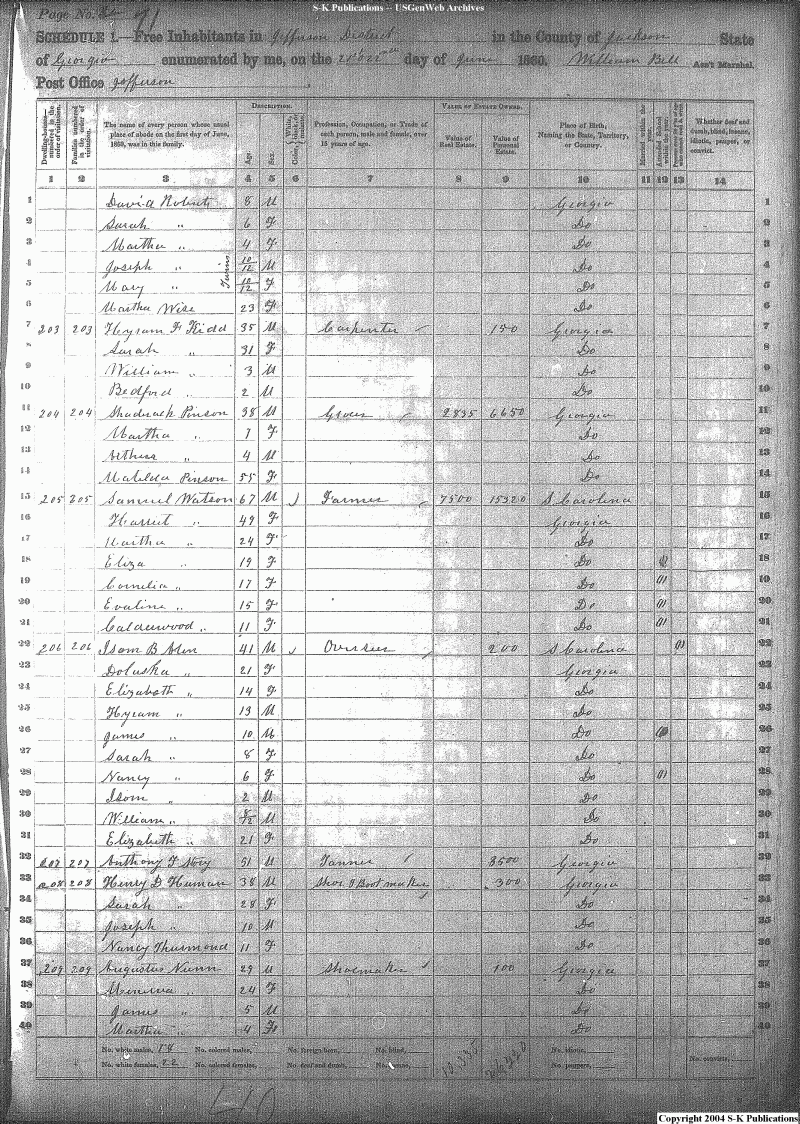 S-K Publications -- USGenWeb Archives
Page No. 91
SCHEDULE 1.—Free Inhabitants in Jefferson District in the County of Jackson State
of Georgia enumerated by me, on the day of June 1860. William Bell Ass't Marshal.
Post Office Jefferson
DESCRIPTION. VALUE OF ESTATE OWNED.
Dwelling-houses— numbered in the order of visitation. Families numbered in the order of visitation. The name of every person whose usual place of abode on the first day of June, 1860, was in this family. Age Sex Profession, Occupation, or Trade of each person, male and female, over 15 years of age. Value of Real Estate. Value of Personal Estate. Place of Birth, Naming the State, Territory, or Country. Married within the year. Attended School within the year. Whether deaf and dumb, blind, insane, idiotic, pauper, or convict.
1 2 3 4 5 6 7 8 9 10 11 12 13 14
1 David 8 M Georgia 1
2 Sarah " 6 F Do 2
3 Martha " 4 F Do 3
4 Joseph " Twins 10/12 M Do 4
5 Mary " 10/12 F Do 5
6 Martha Wise 23 F Do 6
7 203 203 Hyram F Kidd 35 M Carpenter 150 Georgia 7
8 Sarah " 31 F Do 8
9 William " 3 M Do 9
10 Bedford " 2 M Do 10
11 204 204 Shadrack Pinson 38 M 2835 6650 Georgia 11
12 Martha " 7 F Do 12
13 " 4 M Do 13
14 Matilda Pinson 55 F Do 14
15 205 205 Samuel Watson 67 M Farmer 7500 15320 S Carolina 15
16 Harriet " 49 F Georgia 16
17 Martha " 24 F Do 17
18 Eliza " 19 F Do 18
19 Cornelia " 17 F Do 01 19
20 Evaline " 15 F Do 01 20
21 Calderwood " 11 F Do 01 21
22 206 206 Isom B 41 M Overseer 200 S Carolina 01 22
23 Doluska " 21 F Georgia 23
24 Elizabeth " 14 F Do 24
25 Hyram " 13 M Do 25
26 James " 10 M Do 26
27 Sarah " 8 F Do 27
28 Nancy " 6 F Do 01 28
29 Isom " 2 M Do 29
30 William " M Do 30
31 Elizabeth " 21 F Do 31
32 207 207 Anthony F Story 51 M Tanner 3500 Georgia 32
33 208 208 Henry D Human 38 M Shoe & Boot maker 300 Georgia 33
34 Sarah " 28 F Do 34
35 Joseph " 10 M Do 35
36 Nancy Thurmond 11 F Do 36
37 209 209 Augustus Nunn 29 M Shoemaker 100 Georgia 37
38 Minerva " 24 F Do 38
39 James " 5 M Do 39
40 Martha " 4 F Do 40
No. white males, 18 No. colored males, No. foreign born, No. blind, No. idiotic,
No. white females, 22 No. colored females, No. deaf and dumb, No. insane, No. paupers, No. convicts,
Copyright 2004 S-K Publications